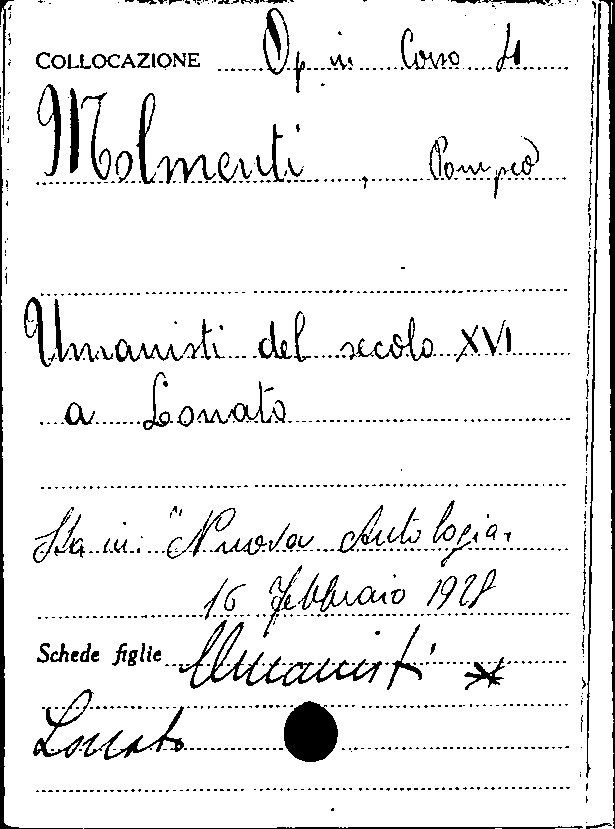 COLLOCAZIONE Op in Corso 41
Molmenti, Pompeo
Umanisti del secolo XVI
a Lonato
Sta in: "Nuova Antologia.
16 febbraio 1928
Schede figlie Umanisti *
Lonato